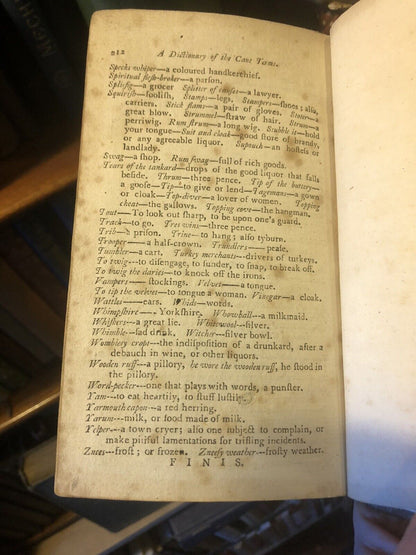 212 A Dictionary of the Cant Terms.
Specks wiper—a coloured handkerchief.
Spiritual flesh-broker—a parson.
Splitfig—a grocer Splitter of causes—a lawyer.
Squirish—foolish, Stamps—legs. Stampers—shoes; also,
carriers. Stick flams—a pair of gloves. Stoter—a
great blow. Strummel—straw of hair. Strum—a
perriwig. Rum strum—a long wig. Stubble it—hold
your tongue—Suit and cloak—good store of brandy,
or any agreeable liquor. Supouch—an hostess or
landlady.
Swag—a shop. Rum swag—full of rich goods.
Tears of the tankard—drops of the good liquor that falls
beside. Thrum—three pence. Tip of the buttery—
a goose—Tip—to give or lend—Tagemans—a gown
or cloak—Top-diver—a lover of women. Topping
cheat—the gallows. Topping cove—the hangman.
Tout—To look out sharp, to be upon one's guard.
Track—to go. Tres wins—three pence.
Trib—a prison. Trine—to hang; also tyburn.
Trooper—a half-crown. Trundlers—pease.
Tumbler—a cart. Turkey merchants—drivers of turkeys.
To twig—to disengage, to sunder, to snap, to break off.
To twig the daries—to knock off the irons.
Vampers—stockings. Velvet—a tongue.
To tip the velvet—to tongue a woman. Vinegar—a cloak.
Wattles—ears. Whids—words.
Whimpshire—Yorkshire. Whowball—a milkmaid.
Whiskers—a great lie. White wool—silver.
Whimble—lad drink. Witcher—silver bowl.
Womblety cropt—the indisposition of a drunkard, after a
debauch in wine, or other liquors.
Wooden ruff—a pillory, he wore the wooden ruff, he stood in
the pillory.
Word-pecker—one that plays with words, a punster.
Yam—to eat heartily, to stuff lustily.
Yarmouth capon—a red herring.
Yarum—milk, or food made of milk.
Yelper—a town cryer; also one subject to complain, or
make pitiful lamentations for trifling incidents.
Znees—frost; or frozen. Zneesy weather—frosty weather.
FINIS.